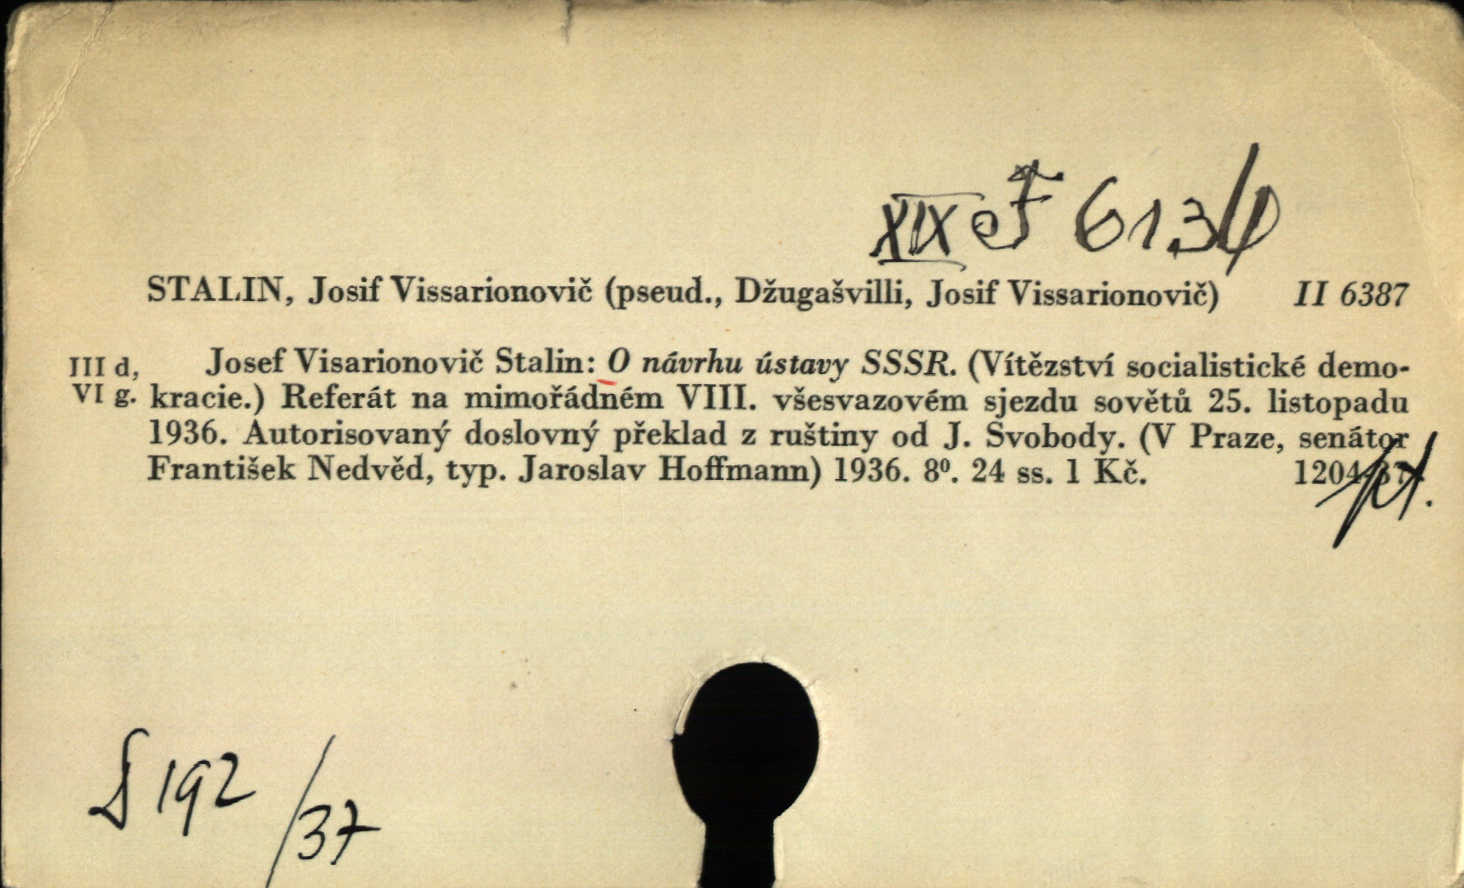 XIX F 6134
STALIN, Josif Vissarionovič (pseud., Džugašvilli, Josif Vissarionovič) II 6387
III d, Josef Visarionovič Stalin: O návrhu ústavy SSSR. (Vítězství socialistické demo-
VI g. kracie.) Referát na mimořádném VIII. všesvazovém sjezdu sovětů 25. listopadu
1936. Autorisovaný doslovný překlad z ruštiny od J. Svobody. (V Praze, senátor
František Nedvěd, typ. Jaroslav Hoffmann) 1936. 8⁰. 24 ss. 1 Kč. 1204/37
192/37